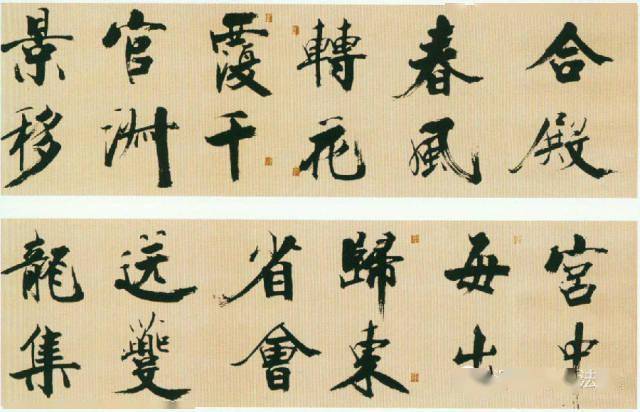 合殿
春風
轉花
覆千
官淑
景移
宮中
每出
歸東
省會
送夔
龍集
法